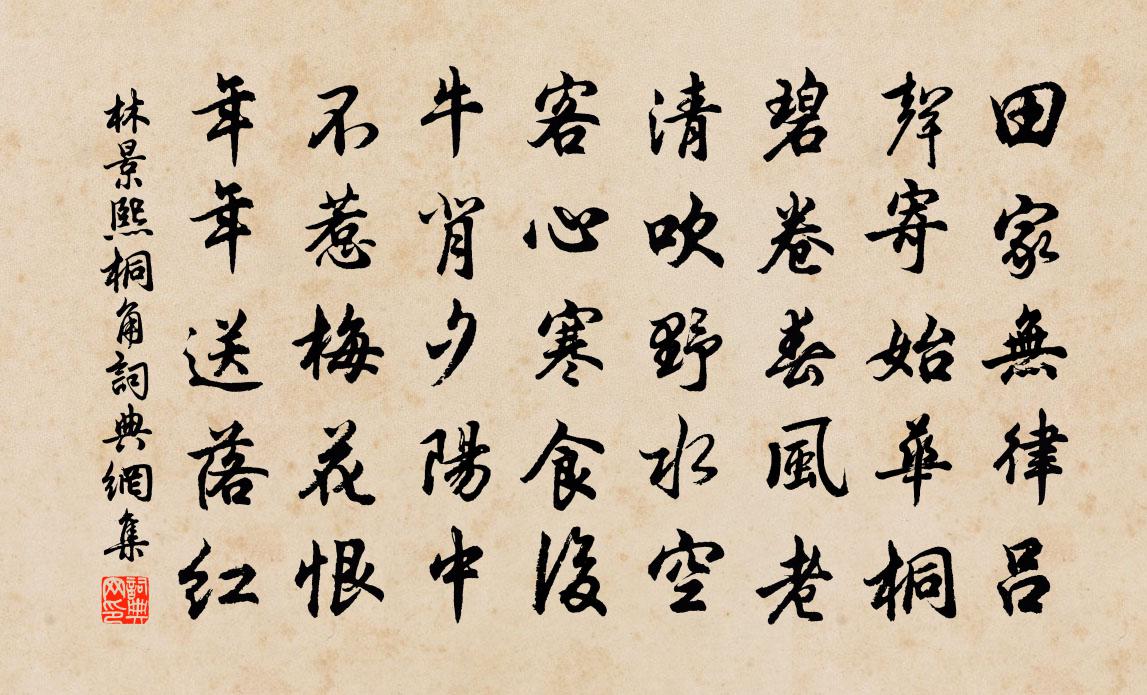 田家無律呂
聲寄始華桐
碧卷春風老
清吹野水空
客心寒食後
牛背夕陽中
不惹梅花恨
年年送落红
林景熙桐角詞典網集
詞典网印